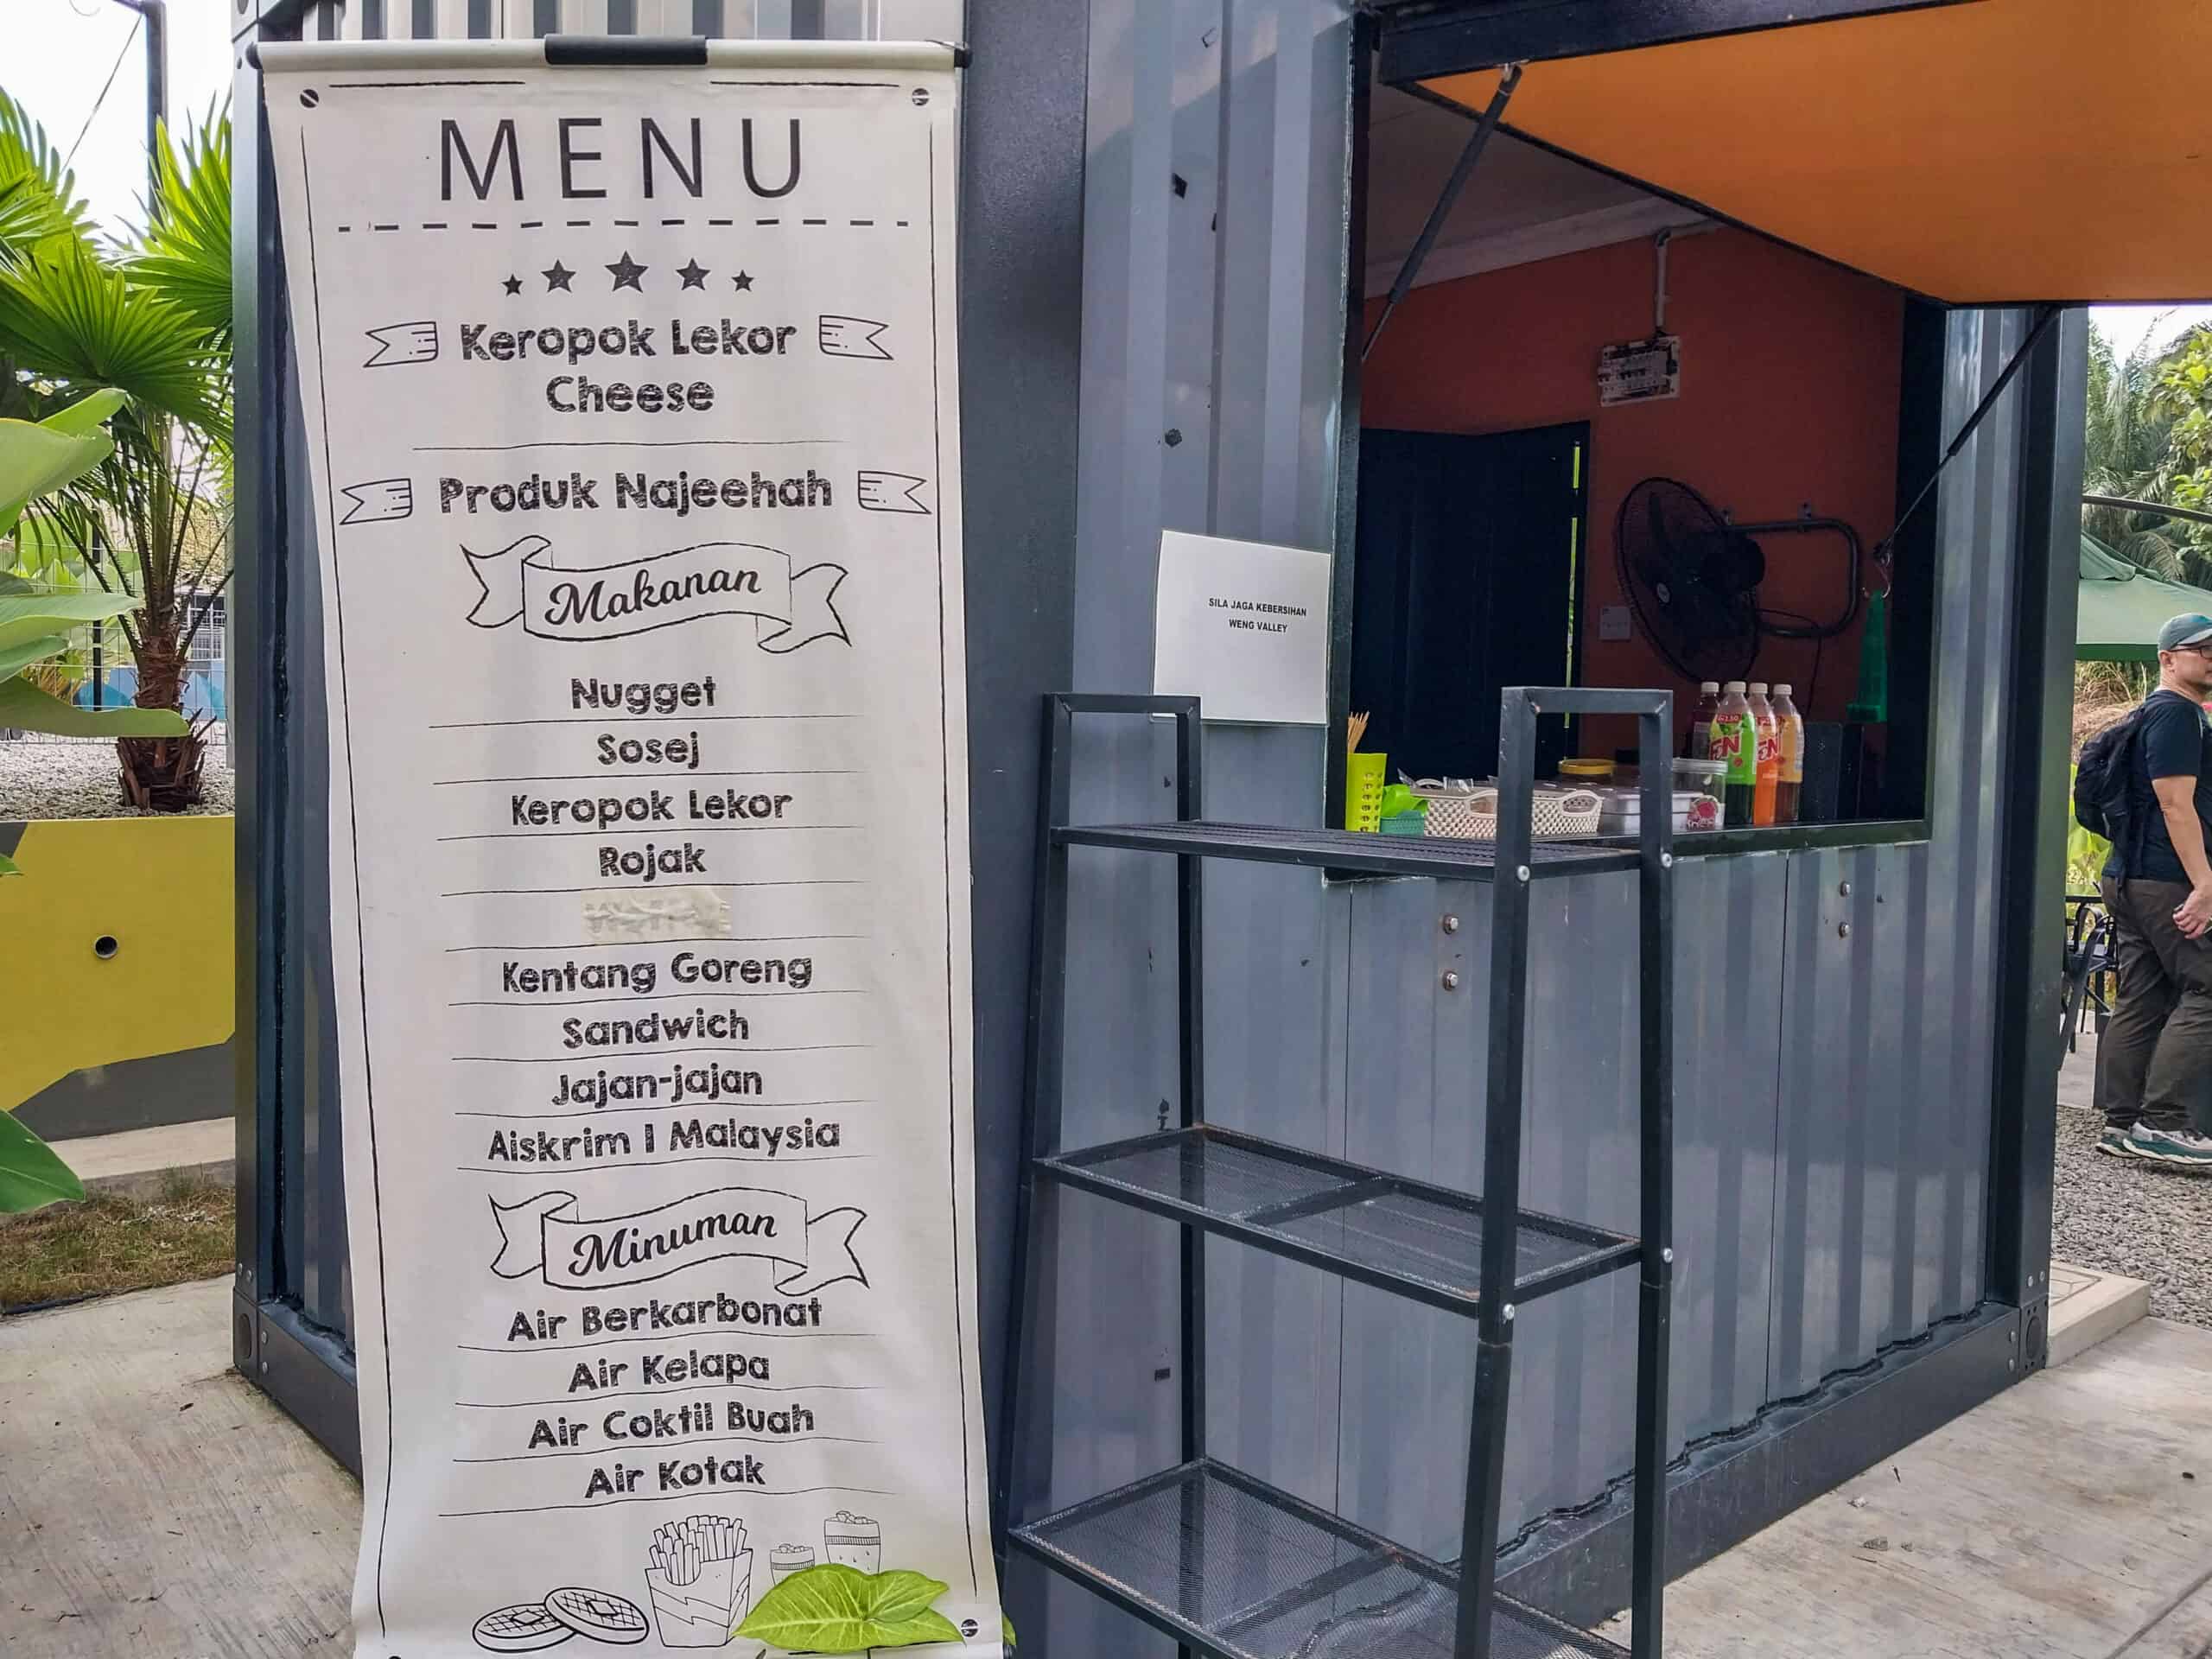 MENU
Keropok Lekor
Cheese
Produk Najeehah
Makanan
Nugget
Sosej
Keropok Lekor
Rojak
Kentang Goreng
Sandwich
Jajan-jajan
Aiskrim 1 Malaysia
Minuman
Air Berkarbonat
Air Kelapa
Air Coktil Buah
Air Kotak
SILA JAGA KEBERSIHAN
WENG VALLEY
F&N
F&N